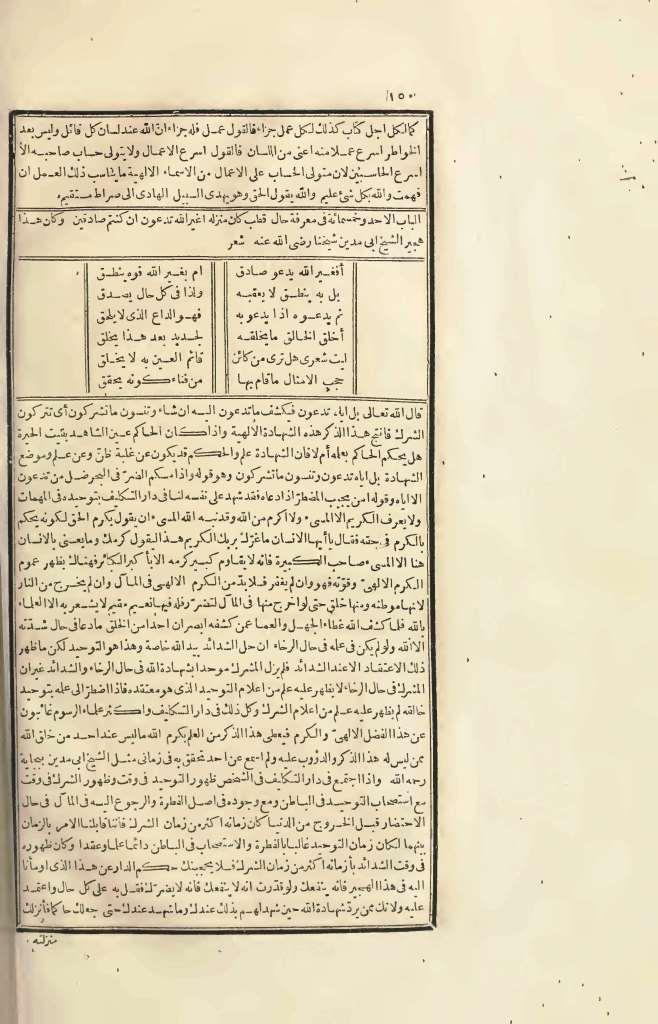 ١٥٠
كما لكل اجل كتاب كذلك لكل عمل جزاء فالقول عمل فله جزاء ان الله عند لسان كل قائل وليس بعد
الخواطر اسرع عملا منه اعنى من اللسان فالقول اسرع الاعمال ولا يتولى حساب صاحبه الا
اسرع الحاسبين لان متولى الحساب على الاعمال من الاسماء الالهية ما يناسب ذلك العمل ان
فهمت والله بكل شئ عليم والله يقول الحق وهو يهدى السبيل الهادى الى صراط مستقيم
الباب الاحد وخمسمائة فى معرفة حال قطب كان منزله اغير الله تدعون ان كنتم صادقين وكان هذا
هجير الشيخ ابى مدين شيخنا رضى الله عنه شعر
أفغير الله يدعو صادق ام بغير الله فوه ينطق
بل به ينطق لا يعقبه ولذا فى كل حال يصدق
ثم يدعوه اذا يدعو به فهو الداع الذى لا يلحق
أخلق الخالق ما يخلقه لجديد بعد هذا يخلق
ليت شعرى هل ترى من كائن قائم العين به لا يخلق
حجب الامثال ما قام بها من فناء كونه يحقق
قال الله تعالى بل اياه تدعون فيكشف ما تدعون اليه ان شاء وتنسون ما تشركون أى تتركون
الشرك فانتج هذا الذكر هذه الشهادة الالهية واذا كان الحاكم عين الشاهد بقيت الحيرة
هل يحكم الحاكم بعلمه أم لا فان الشهادة علم والحكم قد يكون عن غلبة ظن وعن علم وموضع
الشهادة بل اياه تدعون وتنسون ما تشركون وهو قوله واذا مسكم الضر فى البحر ضل من تدعون
الا اياه وقوله امن يجيب المضطر اذا دعاه فقد شهد على نفسه لنا فى دار التكليف بتوحيده فى المهمات
ولا يعرف الكريم الا المسىء ولا اكرم من الله وقد نبه الله المسىء ان يقول بكرم الحق لكونه يحكم
بالكرم فى حقه فقال يا أيها الانسان ما غرك بربك الكريم هذا ليقول كرمك وما يعنى بالانسان
هنا الا المسىء صاحب الكبيرة فانه لا يقاوم كبير كرمه الا بأكبر الكبائر فهناك يظهر عموم
الكرم الالهى وقوته فهو وان لم يغفر فلا بد من الكرم الالهى فى المآل وان لم يخرج من النار
لانها موطنه ومنها خلق حتى لو اخرج منها فى المآل لتضرر فله فيها نعيم مقيم لا يشعر به الا العلماء
بالله فلما كشف الله غطاء الجهل والعما عن كشفه ابصر ان احدا من الخلق ما دعا فى حال شدته
الا الله ولو لم يكن فى علمه فى حال الرخاء ان حل الشدائد بيد الله خاصة وهذا هو التوحيد لكن ما ظهر
ذلك الاعتقاد الا عند الشدائد فلم يزل المشرك موحدا بشهادة الله فى حال الرخاء والشدائد غير ان
المشرك فى حال الرخاء لا يظهر عليه علم من اعلام التوحيد الذى هو معتقده فاذا اضطر الى علمه بتوحيد
خالقه لم يظهر عليه علم من اعلام الشرك وكل ذلك فى دار التكليف واكثر علماء الرسوم غائبون
عن هذا الفضل الالهى والكرم فيعطى هذا الذكر من العلم بكرم الله ما ليس عند احد من خلق الله
ممن ليس له هذا الذكر والدؤوب عليه ولم اسمع عن احد تحقق به فى زمانى مثل الشيخ ابى مدين ببجاية
رحمه الله واذا اجتمع فى دار التكليف فى الشخص ظهور التوحيد فى وقت وظهور الشرك فى وقت
مع استصحاب التوحيد فى الباطن ومع وجوده فى اصل الفطرة والرجوع اليه فى المآل فى حال
الاحتضار قبل الخروج من الدنيا كان زمانه اكثر من زمان الشرك فاننا قابلنا الامر بالزمان
بينهما لكان زمان التوحيد غالبا بالفطرة والاستصحاب فى الباطن دائما علما وعقدا وكان ظهوره
فى وقت الشدائد بأزمانه اكثر من زمان الشرك فلا يحجبنك حكم الدار عن هذا الذى اومأنا
اليه فى هذا الهجير فانه ينفعك ولو قدرت انه لا ينفعك فانه لا يضرك فقل به على كل حال واعتمد
عليه ولا تك ممن يرد شهادة الله حين شهد لهم بذلك عندك وما شهد عندك حتى جعلك حاكما فأنزلك
منزلته